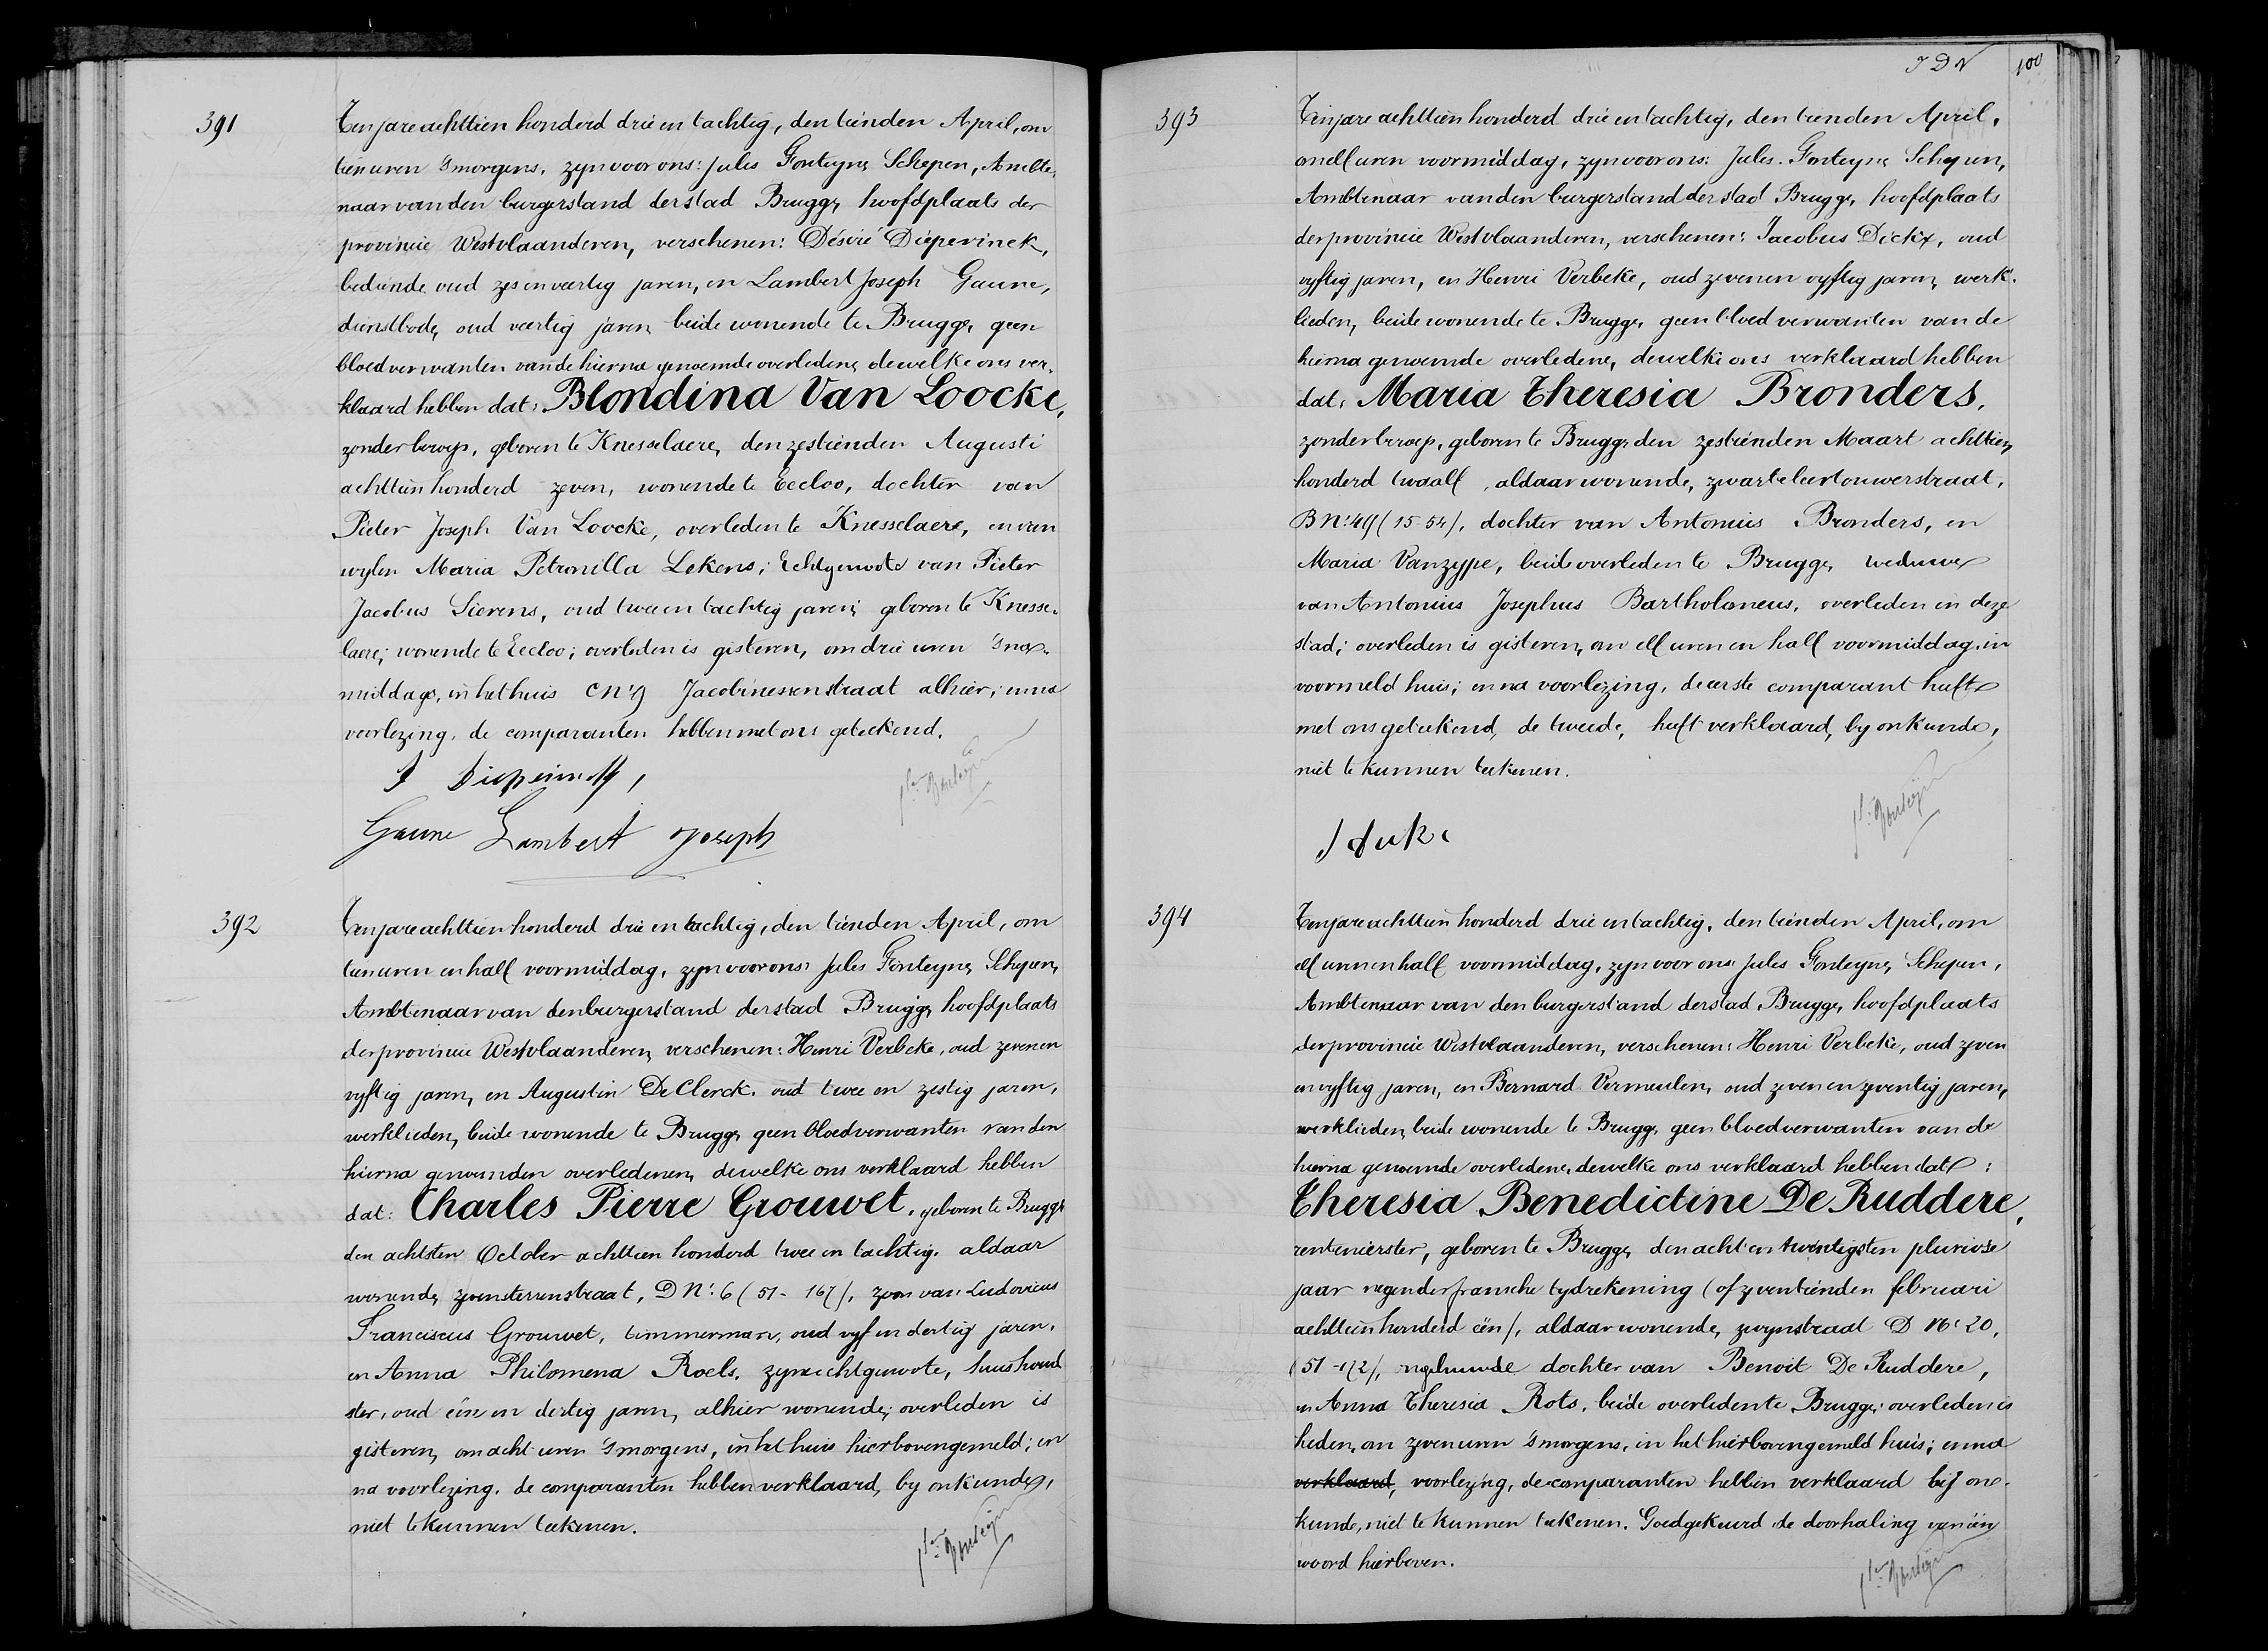 391
Ten jare achttien honderd drie en tachtig, den tienden April, om
tien uren 's morgens, zyn voor ons: Jules Fonteyne, Schepen, Ambte-
naar van den burgerstand der stad Brugge, hoofdplaats der
provincie Westvlaanderen, verschenen: Désiré Dieperinck,
bediende, oud zes en veertig jaren, en Lambert Joseph Gaune,
dienstbode, oud veertig jaren, beide wonende te Brugge, geen
bloedverwanten van de hierna genoemde overledene, dewelke ons ver-
klaard hebben dat: Blondina Van Loocke,
zonder beroep, geboren te Knesselaere, den zestienden Augusti
achttien honderd zeven, wonende te Eecloo, dochter van
Pieter Joseph Van Loocke, overleden te Knesselaere, en van
wylen Maria Petronilla Lekens; Echtgenoote van Pieter
Jacobus Sierens, oud twee en tachtig jaren, geboren te Knesse-
laere; wonende te Eecloo; overleden is gisteren, om drie uren 's na-
middags, in het huis C Nr 9 Jacobinessenstraat alhier; en na
voorlezing, de comparanten hebben met ons geteekend.
Gaune Lambert Joseph
392
Ten jare achttien honderd drie en tachtig, den tienden April, om
tien uren en half voormiddag, zyn voor ons: Jules Fonteyne, Schepen,
Ambtenaar van den burgerstand der stad Brugge, hoofdplaats
der provincie Westvlaanderen, verschenen: Henri Verbeke, oud zeven en
vyftig jaren, en Augustin De Clerck, oud twee en zestig jaren,
werklieden, beide wonende te Brugge, geen bloedverwanten van den
hierna genoemden overledenen, dewelke ons verklaard hebben
dat: Charles Pierre Grouwet, geboren te Brugge
den achtsten October achttien honderd twee en tachtig, aldaar
wonende, zevensterrenstraat, D Nr: 6 (51 - 167), zoon van Ludovicus
Franciscus Grouwet, timmerman, oud vyf en dertig jaren,
en Anna Philomena Roels, zyne echtgenoote, huishoud
ster, oud één en dertig jaren, alhier wonende; overleden is
gisteren, om acht uren 's morgens, in het huis hierboven gemeld; en
na voorlezing, de comparanten hebben verklaard, by onkunde,
niet te kunnen teekenen.
J D N 100
393
Ten jare achttien honderd drie en tachtig, den tienden April,
om elf uren voormiddag, zyn voor ons: Jules Fonteyne, Schepen,
Ambtenaar van den burgerstand der stad Brugge, hoofdplaats
der provincie Westvlaanderen, verschenen: Jacobus Dickx, oud
vyftig jaren, en Henri Verbeke, oud zeven en vyftig jaren, werk-
lieden, beide wonende te Brugge, geen bloedverwanten van de
hierna genoemde overledene, dewelke ons verklaard hebben
dat: Maria Theresia Bronders,
zonder beroep, geboren te Brugge den zestienden Maart achttien
honderd twaalf, aldaar wonende, zwarteleertouwerstraat,
B Nr: 49 (15-54), dochter van Antonius Bronders, en
Maria Vanzype, beide overleden te Brugge, weduwe
van Antonius Josephus Bartholomeus, overleden in deze
stad; overleden is gisteren, om elf uren en half voormiddag, in
voormeld huis; en na voorlezing, de eerste comparant heeft
met ons geteekend, de tweede, heeft verklaard, by onkunde,
niet te kunnen teekenen.
394
Ten jare achttien honderd drie en tachtig, den tienden April, om
elf uren en half voormiddag, zyn voor ons: Jules Fonteyne, Schepen,
Ambtenaar van den burgerstand der stad Brugge, hoofdplaats
der provincie Westvlaanderen, verschenen: Henri Verbeke, oud zeven
en vyftig jaren, en Bernard Vermeulen, oud zeven en zeventig jaren,
werklieden, beide wonende te Brugge, geen bloedverwanten van de
hierna genoemde overledene, dewelke ons verklaard hebben dat:
Theresia Benedictine De Ruddere,
rentenierster, geboren te Brugge, den acht en twintigsten pluviose
jaar negen der fransche tydrekening (of zeventienden februari
achttien honderd één), aldaar wonende, zwynstraat D Nr: 20,
(51-172), ongehuwde dochter van Benoit De Ruddere,
en Anna Theresia Rots, beide overleden te Brugge; overleden is
heden, om zeven uren 's morgens, in het hierboven gemeld huis; en na
verklaard, voorlezing, de comparanten hebben verklaard bij on-
kunde, niet te kunnen teekenen. Goedgekeurd de doorhaling van één
woord hierboven.